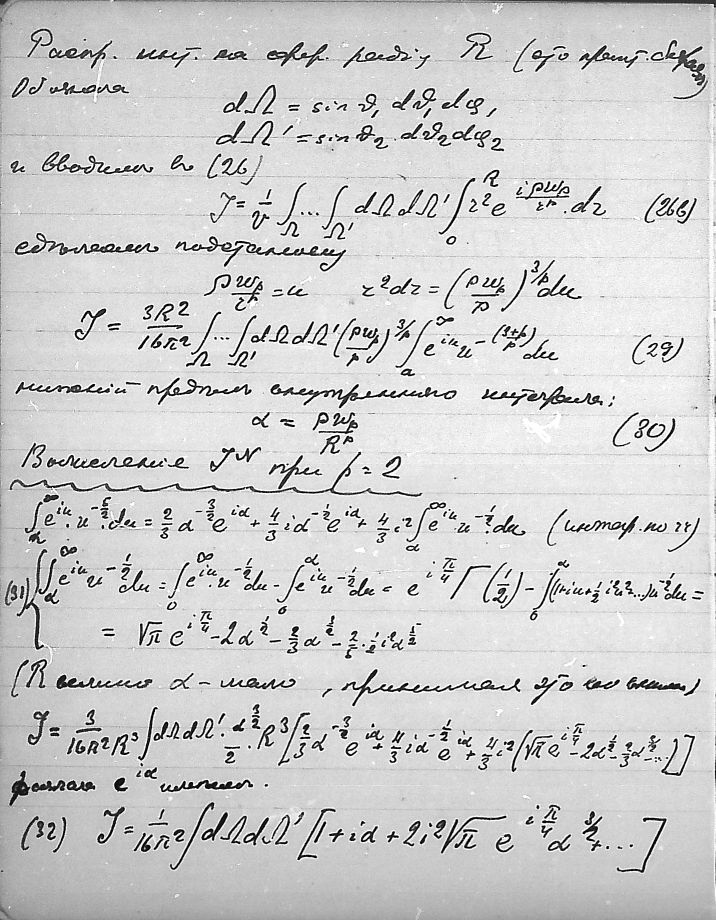 Распр. инт. на сфер. радіу R (это
Обозначая
dΩ = sin ϑ₁ dϑ₁ dφ₁
dΩ' = sin ϑ₂ dϑ₂ dφ₂
и вводим в (26)
J = 1/V ∫_Ω ... ∫_Ω' dΩ dΩ' ∫_0^R r² e^{i ρw_p/r^p} dr (26в)
сделаем подстановку
ρw_p/r^p = u r² dr = (ρw_p/p)^{3/p} du
J = 3R²/16π² ∫_Ω ... ∫_Ω' dΩ dΩ' (ρw_p/p)^{3/p} ∫_a^∞ e^{iu} u^{-(3+p)/p} du (29)
нижній предел внутреннего интеграла:
α = ρw_p/R^p (30)
Вычисление J^N при p = 2
∫_α^∞ e^{iu} · u^{-5/2} du = 2/3 α^{-3/2} e^{iα} + 4/3 i α^{-1/2} e^{iα} + 4/3 i² ∫_α^∞ e^{iu} u^{-1/2} du (интегр. по ч)
(31) { ∫_α^∞ e^{iu} u^{-1/2} du = ∫_0^∞ e^{iu} · u^{-1/2} du - ∫_0^α e^{iu} u^{-1/2} du = e^{i π/4} Γ(1/2) - ∫_0^α (1+iu+1/2 i²u²...) u^{-1/2} du =
= √π e^{i π/4} - 2α^{1/2} - 2/3 α^{3/2} - 2/5 · 1/2 i² α^{5/2}
(R велико α - мало, принимая это во вним.)
J = 3/16π²R³ ∫ dΩ dΩ' · α^{3/2}/2 · R³ [2/3 α^{-3/2} e^{iα} + 4/3 i α^{-1/2} e^{iα} + 4/3 i² (√π e^{i π/4} - 2α^{1/2} - 2/3 α^{3/2} ...]
e^{iα} имеем.
(32) J = 1/16π² ∫ dΩ dΩ' [1 + iα + 2i² √π e^{i π/4} α^{3/2} + ...]